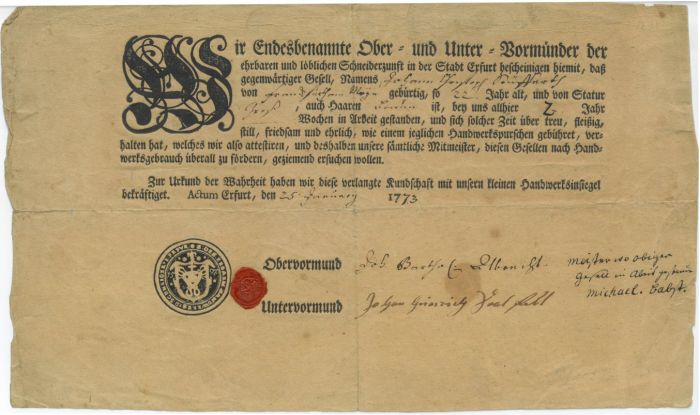 Wir Endesbenannte Ober- und Unter-Vormünder der
ehrbaren und löblichen Schneiderzunft in der Stadt Erfurt bescheinigen hiemit, daß
gegenwärtiger Gesell, Namens Johann
von gebürtig, so 22 Jahr alt, und von Statur
Groß, auch Haaren ist, bey uns allhier 2 Jahr
Wochen in Arbeit gestanden, und sich solcher Zeit über treu, fleißig,
still, friedsam und ehrlich, wie einem jeglichen Handwerkspurschen gebühret, ver-
halten hat, welches wir also attestiren, und deshalben unsere sämtliche Mitmeister, diesen Gesellen nach Hand-
werksgebrauch überall zu fördern, geziemend ersuchen wollen.
Zur Urkund der Wahrheit haben wir diese verlangte Kundschaft mit unsern kleinen Handwerksinsiegel
bekräftiget. Actum Erfurt, den 25 January 1773
Obervormund Joh. Barthel Albrecht.
Meister wo obiger
Gesell in Arbeit gestanden
Michael Pabst.
Untervormund Johan Heinrich